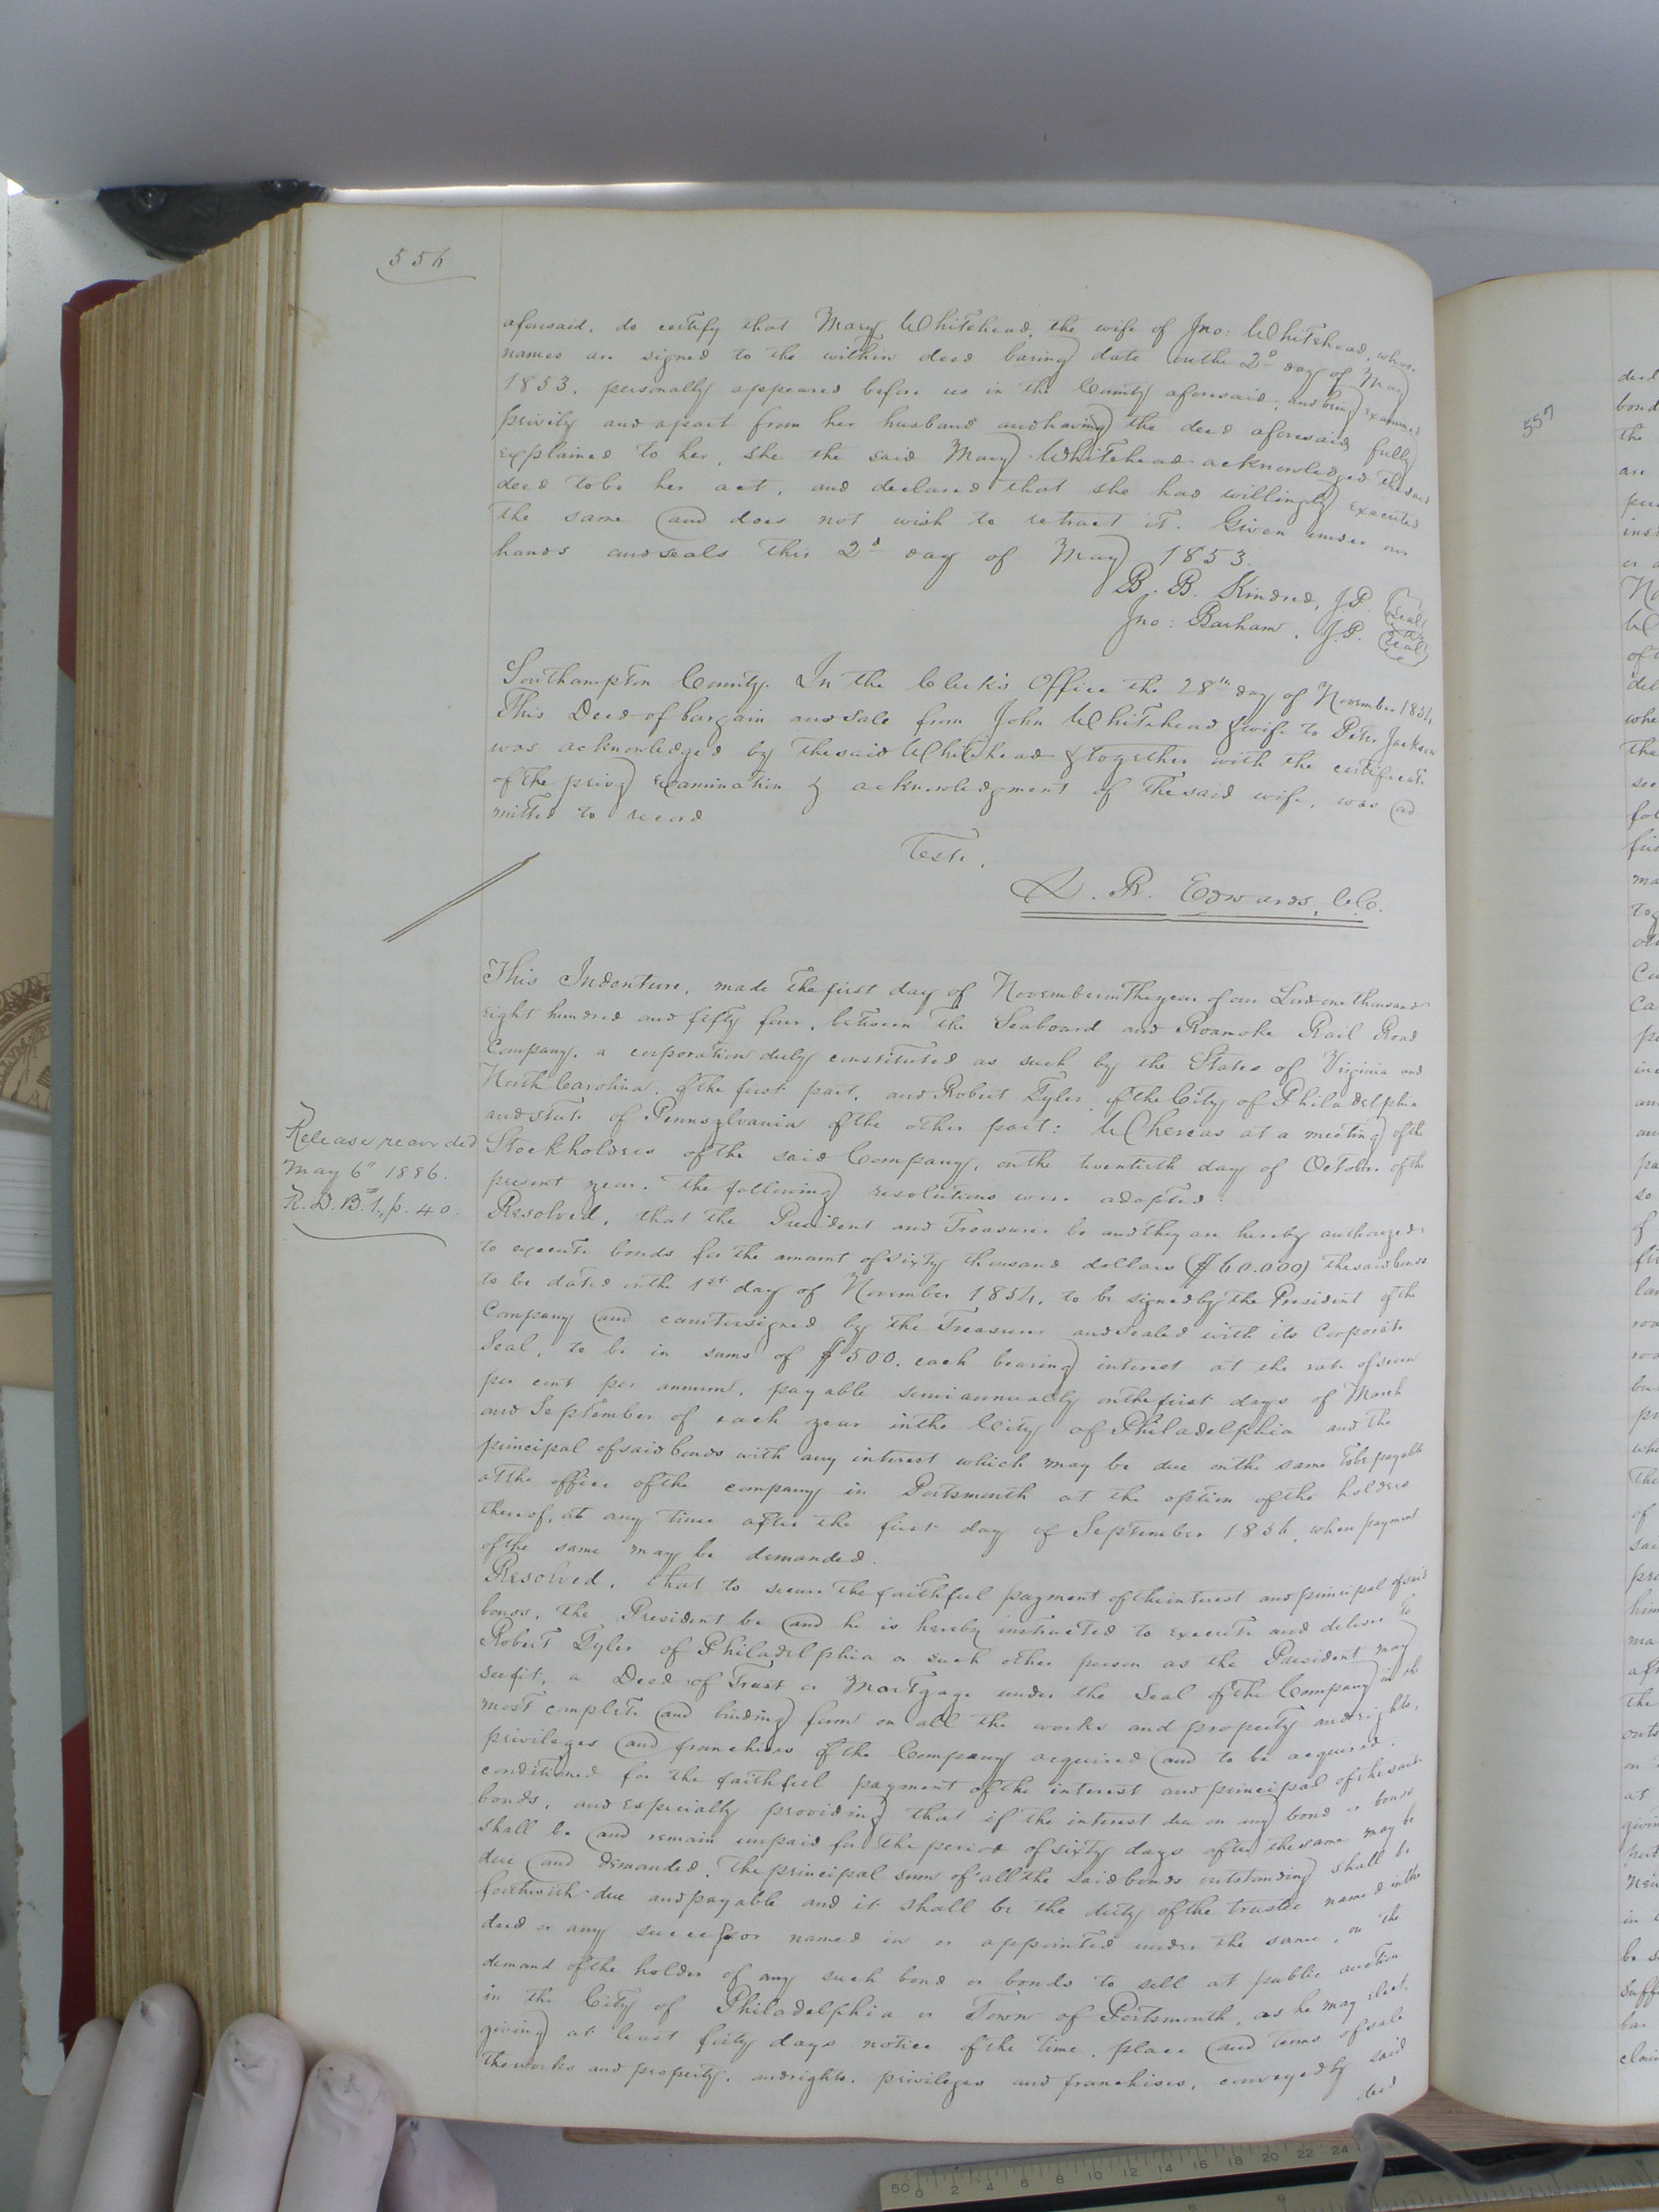 556
aforesaid, do certify that Mary Whitehead, the wife of Jno: Whitehead, whose
names are signed to the within deed baring date on the 2d day of May
1853, personally appeared before us in the County aforesaid, and being examined
privily and apart from her husband and having the deed aforesaid fully
explained to her, she the said Mary Whitehead acknowledged the said
deed to be her act, and declared that she had willingly executed
the same and does not wish to retract it. Given under our
hands and seals this 2d day of May 1853.
B. B. Kindred, J.P. Seal
Jno: Barham, J.P. Seal
Southampton County. In the Clerk's Office the 28th day of November 1854
This Deed of bargain and sale from John Whitehead & wife to Peter Jackson
was acknowledged by the said Whitehead & together with the certificate
of the privy examination & acknowledgment of the said wife, was ad
mitted to record
Teste,
L. R. Edwards, C.C.
This Indenture, made the first day of November in the year of our Lord one thousand
eight hundred and fifty four, between the Seaboard and Roanoke Rail Road
Company, a corporation duly constituted as such by the States of Virginia and
North Carolina, of the first part, and Robert Tyler, of the City of Philadelphia
and state of Pennsylvania of the other part: Whereas at a meeting of the
Stockholders of the said Company, on the twentieth day of October of the
present year, the following resolutions were adopted:
Release recorded
May 6" 1886.
R.D.B. #1, p. 40.
Resolved, that the President and Treasurer be and they are hereby authorized
to execute bonds for the amount of sixty thousand dollars ($60.000) the said bonds
to be dated on the 1st day of November 1854, to be signed by the President of the
Company and countersigned by the Treasurer and sealed with its Corporate
Seal, to be in sums of $500. each bearing interest at the rate of seven
per cent per annum, payable semi annually on the first days of March
and September of each year in the City of Philadelphia and the
principal of said bonds with any interest which may be due on the same to be payable
at the office of the company in Portsmouth at the option of the holders
thereof, at any time after the first day of September 1856, when payment
of the same may be demanded.
Resolved, that to secure the faithful payment of the interest and principal of said
bonds, the President be and he is hereby instructed to execute and deliver to
Robert Tyler of Philadelphia or such other person as the President may
see fit, a Deed of Trust or Mortgage under the Seal of the Company in the
most complete and binding form on all the works and property and rights,
privileges and franchises of the Company acquired and to be acquired.
conditioned for the faithful payment of the interest and principal of the said
bonds, and especially providing that if the interest due on any bond or bonds
shall be and remain unpaid for the period of sixty days after the same may be
due and demanded, the principal sum of all the said bonds outstanding shall be
forthwith due and payable and it shall be the duty of the trustee named in the
deed or any successor named in or appointed under the same, on the
demand of the holder of any such bond or bonds to sell at public auction
in the City of Philadelphia or Town of Portsmouth, as he may elect,
giving at least forty days notice of the time, place and terms of sale
the works and property, and rights, privileges and franchises, conveyed by said
deed
557